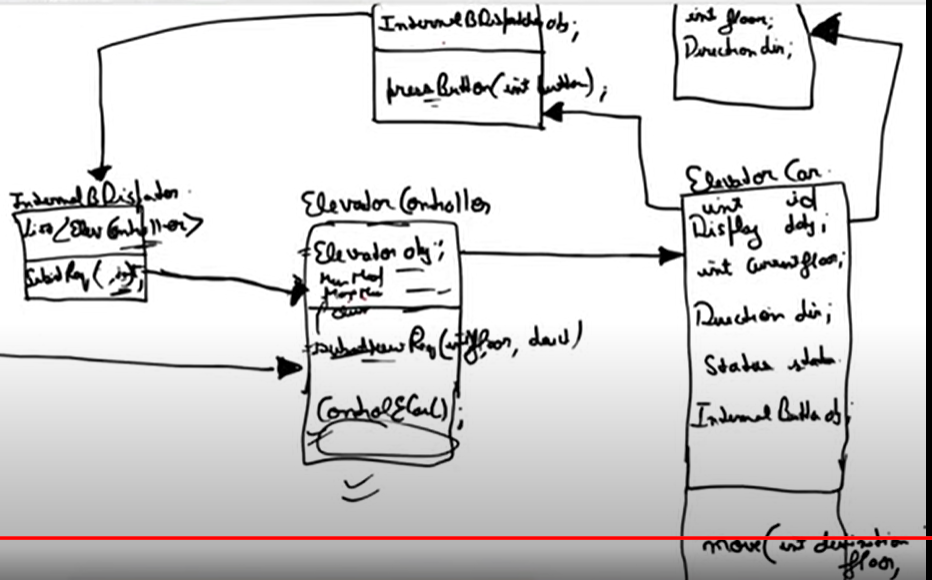 InternalBDispatcher obj;
pressButton(int button);
int floor;
Direction dir;
InternalBDispatcher
List<ElevController>
SubmitReq( , int);
Elevator Controller
Elevator obj;
Min
Max
submitNewReq(int floor, dir d)
ControlECar();
Elevator Car
int id
Display dobj;
int currentfloor;
Direction dir;
Status status
Internal Button obj;
move(int destination
floor,